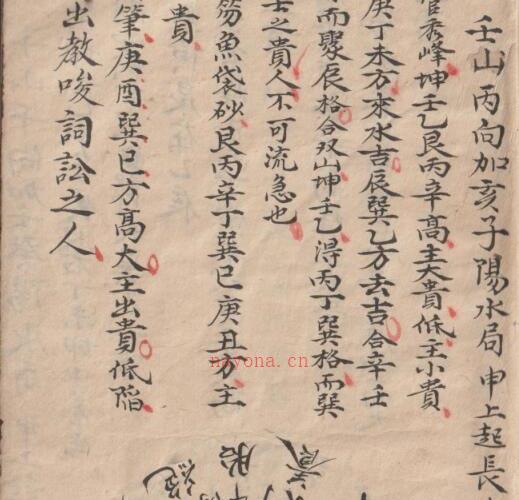 壬山丙向加亥子陽水局申上起長
官秀峰坤壬乙艮丙辛高主大貴低主小貴
庚丁未方來水吉辰巽乙方去吉合辛壬
而聚辰格合双山坤壬乙得丙丁巽格而巽
士之貴人不可流急也
笏魚袋砂艮丙辛丁巽巳庚丑方主
貴
筆庚酉巽巳方高大主出貴低陷
出教唆詞訟之人
貴
胎
nayona.cn